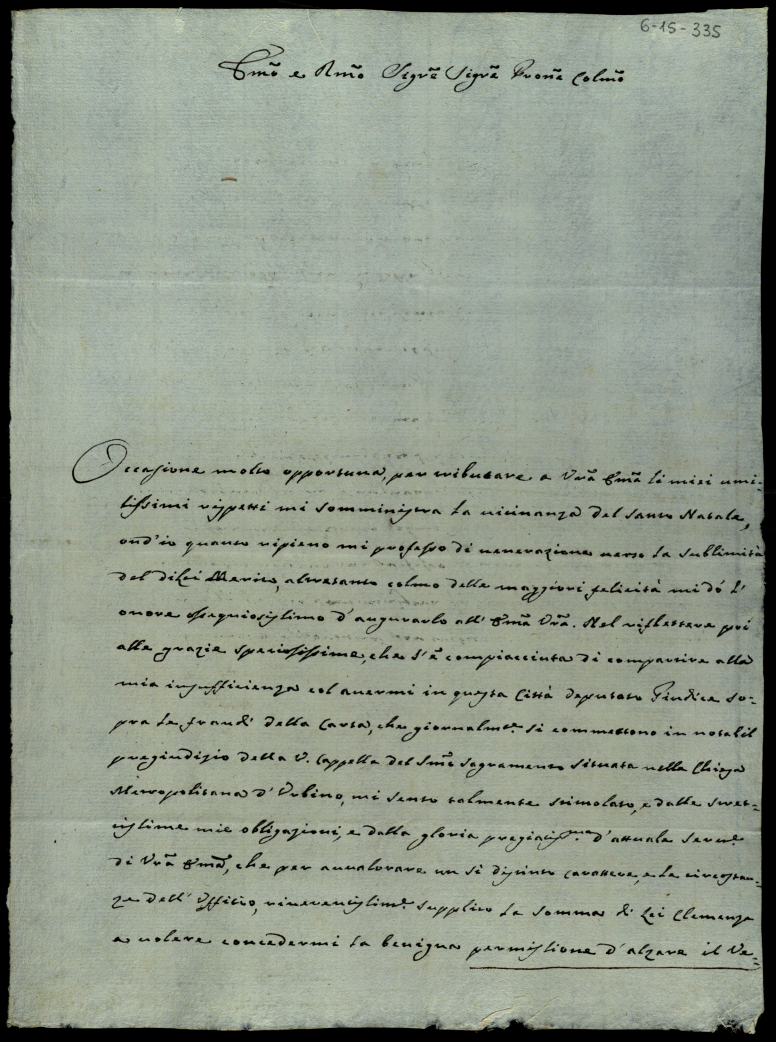 6-15-335
Emo e Rmo Sigre Sigre Prone Colmo
Occasione molto opportuna, per tributare a Vra Ema li miei umi-
lissimi rispetti mi somministra la vicinanza del Santo Natale,
ond'io quanto ripieno mi professo di venerazione verso la sublimità
del di Lei Merito, altretanto colmo delle maggiori felicità mi dó l'
onore ossequiosissimo d'augurarlo all' Ema Vra. Nel riflettere poi
alle grazie speciosissime, che s'è compiacciuta di compartire alla
mia insufficienza col avermi in questa Città deputato Giudice so-
pra le fraudi della Carta, che giornalmte si commettono in notabil
pregiudizio della V. Cappella del Smo Sagramento situata nella Chiesa
Metropolitana d'Urbino, mi sento talmente stimolato, e dalle stret-
tissime mie obligazioni, e dalla gloria pregiatissma d'attuale Servre
di Vra Ema, che per avvalorare un sì distinto carattere, e le circostan-
ze dell' Uffitio, riverentissimte supplico la somma di Lei Clemenza
a volere concedermi la benigna permissione d'alzare il Ve-